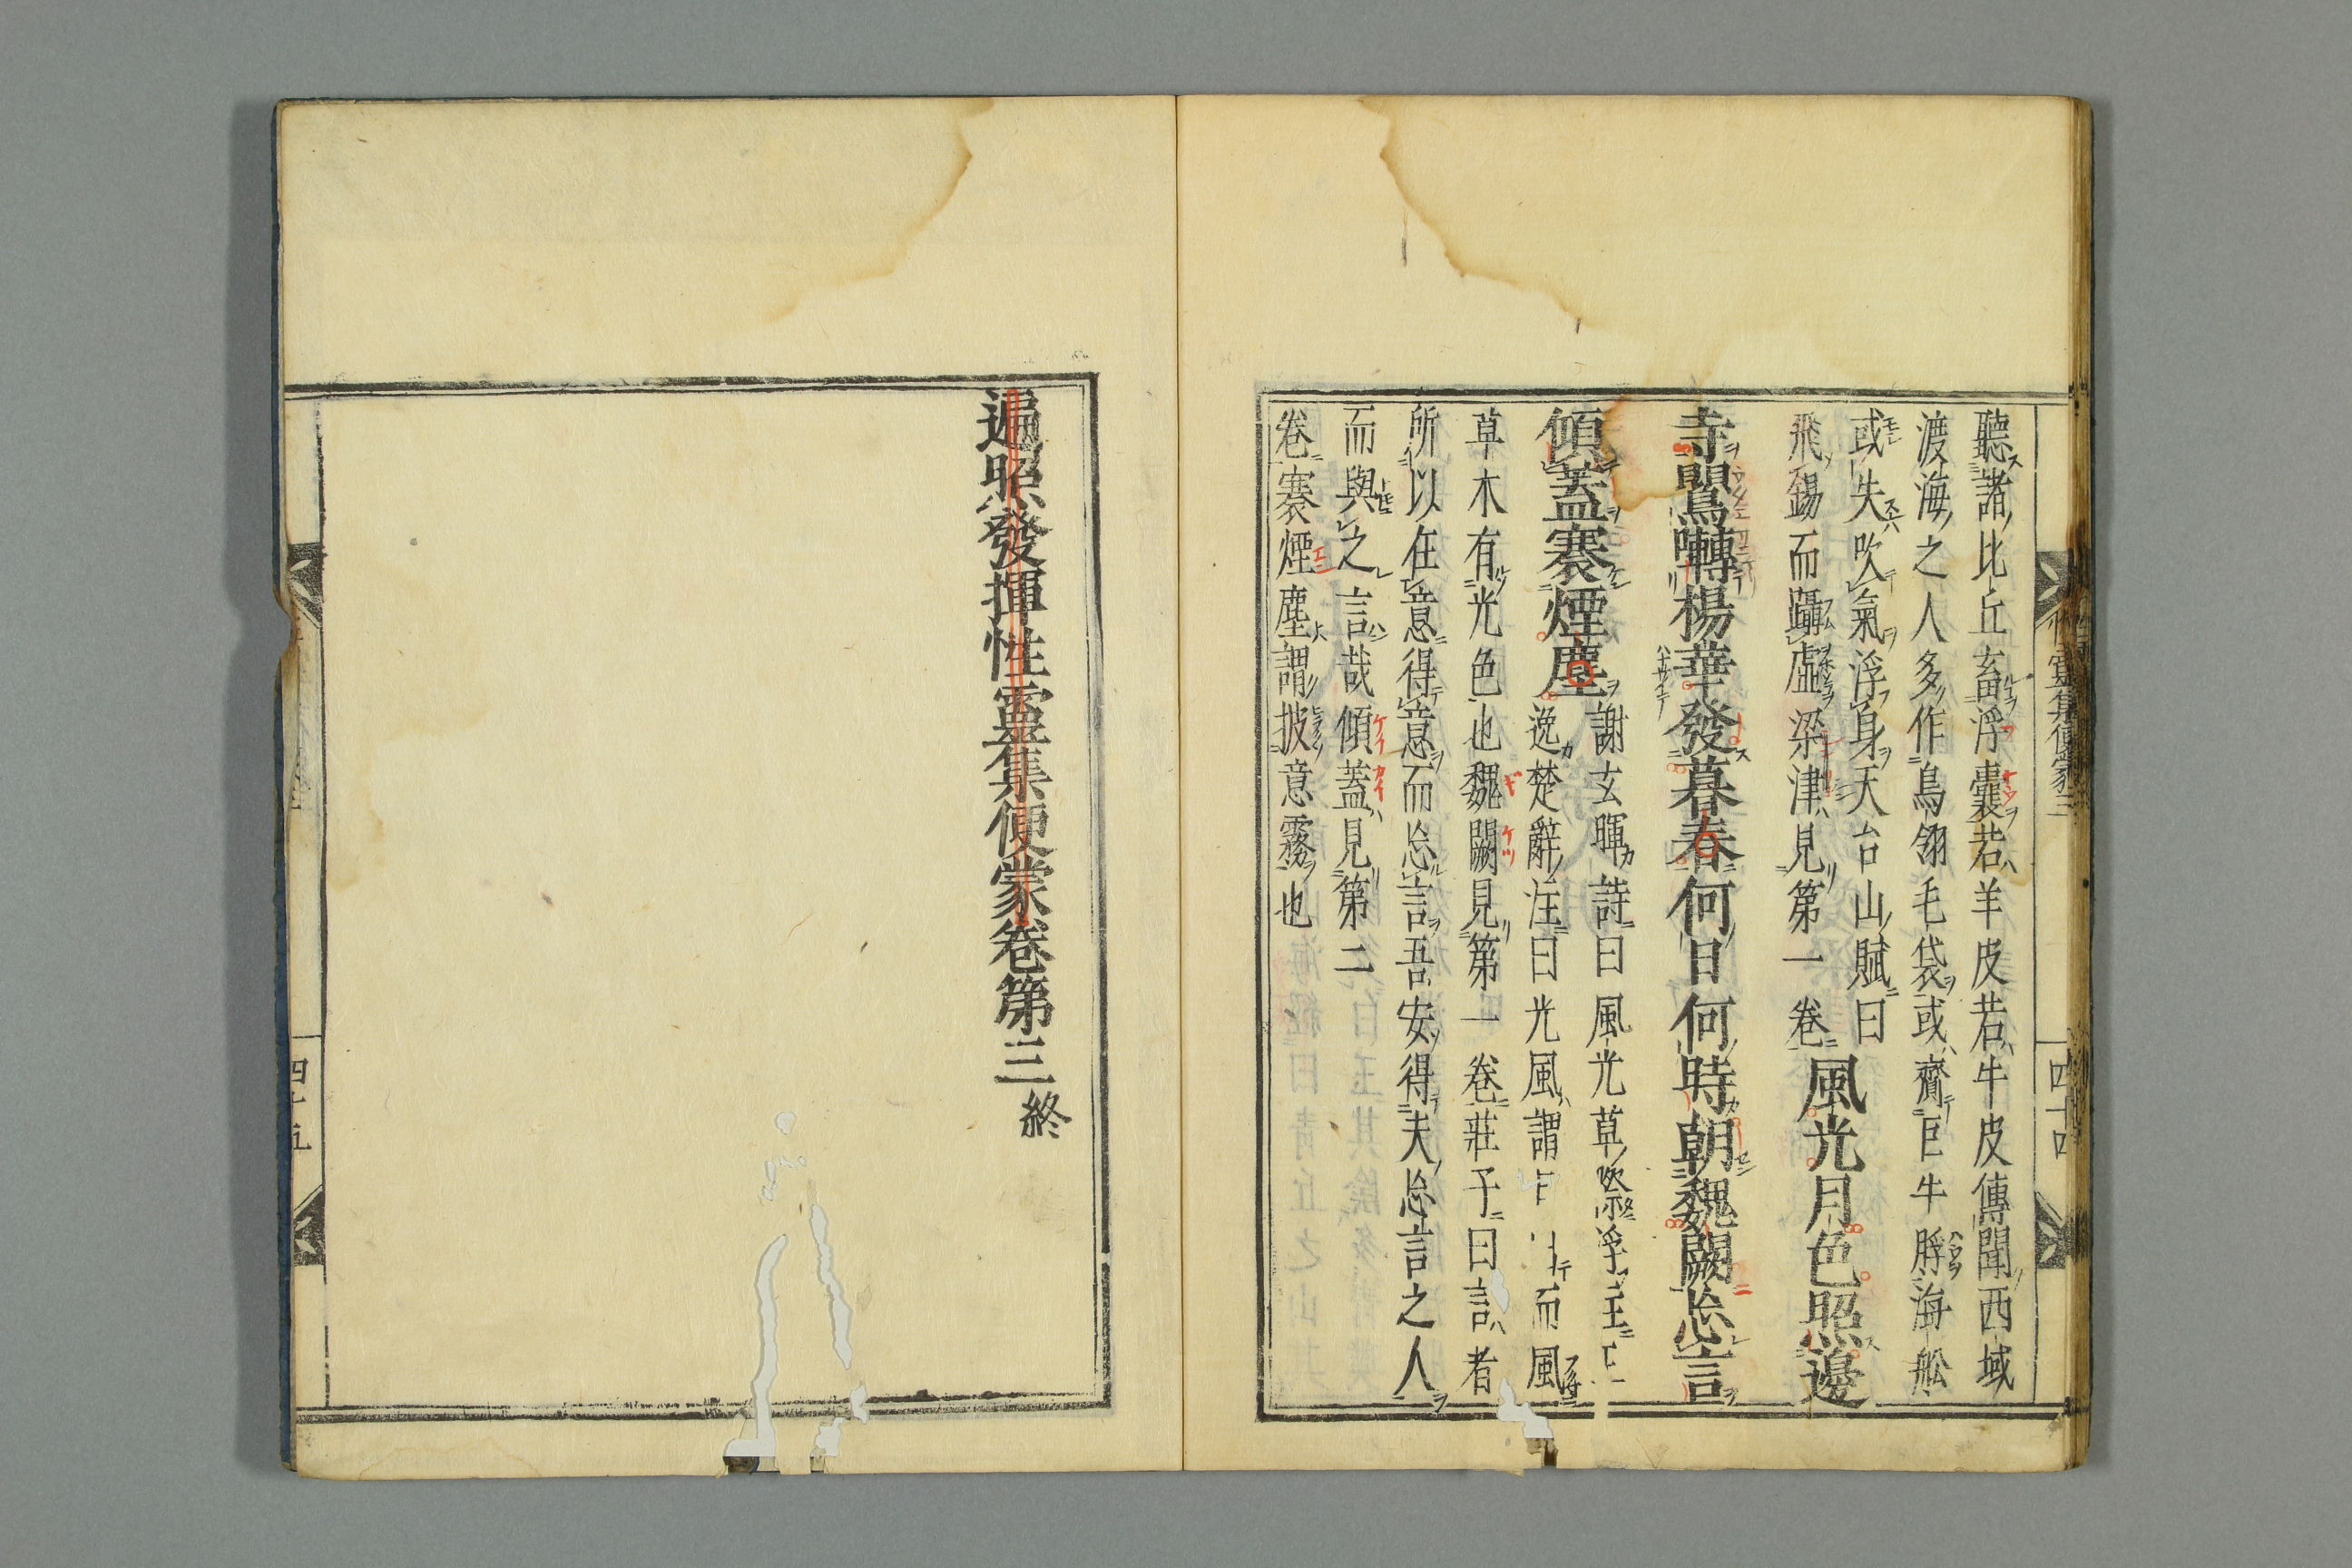 聽諸比丘畜浮囊若羊皮若牛皮傳聞西域
渡海之人多作鳥翎毛袋或齎巨牛脬海舩
或失吹氣浮身天台山賦曰
飛錫而躡虛梁津見第一卷風光月色照邊
寺鸎囀楊華發暮春何日何時朝魏闕忘言
傾蓋褰煙塵
謝玄暉詩曰風光草際浮王
逸楚辭注曰光風謂 而風
草木有光色也魏闕見第一卷莊子曰言者
所以在意得意而忘言吾安得夫忘言之人
而與之言哉傾蓋見第二
卷褰煙塵謂披意霧也
靈集便蒙三
四十四
遍照發揮性靈集便蒙卷第三終
四十五